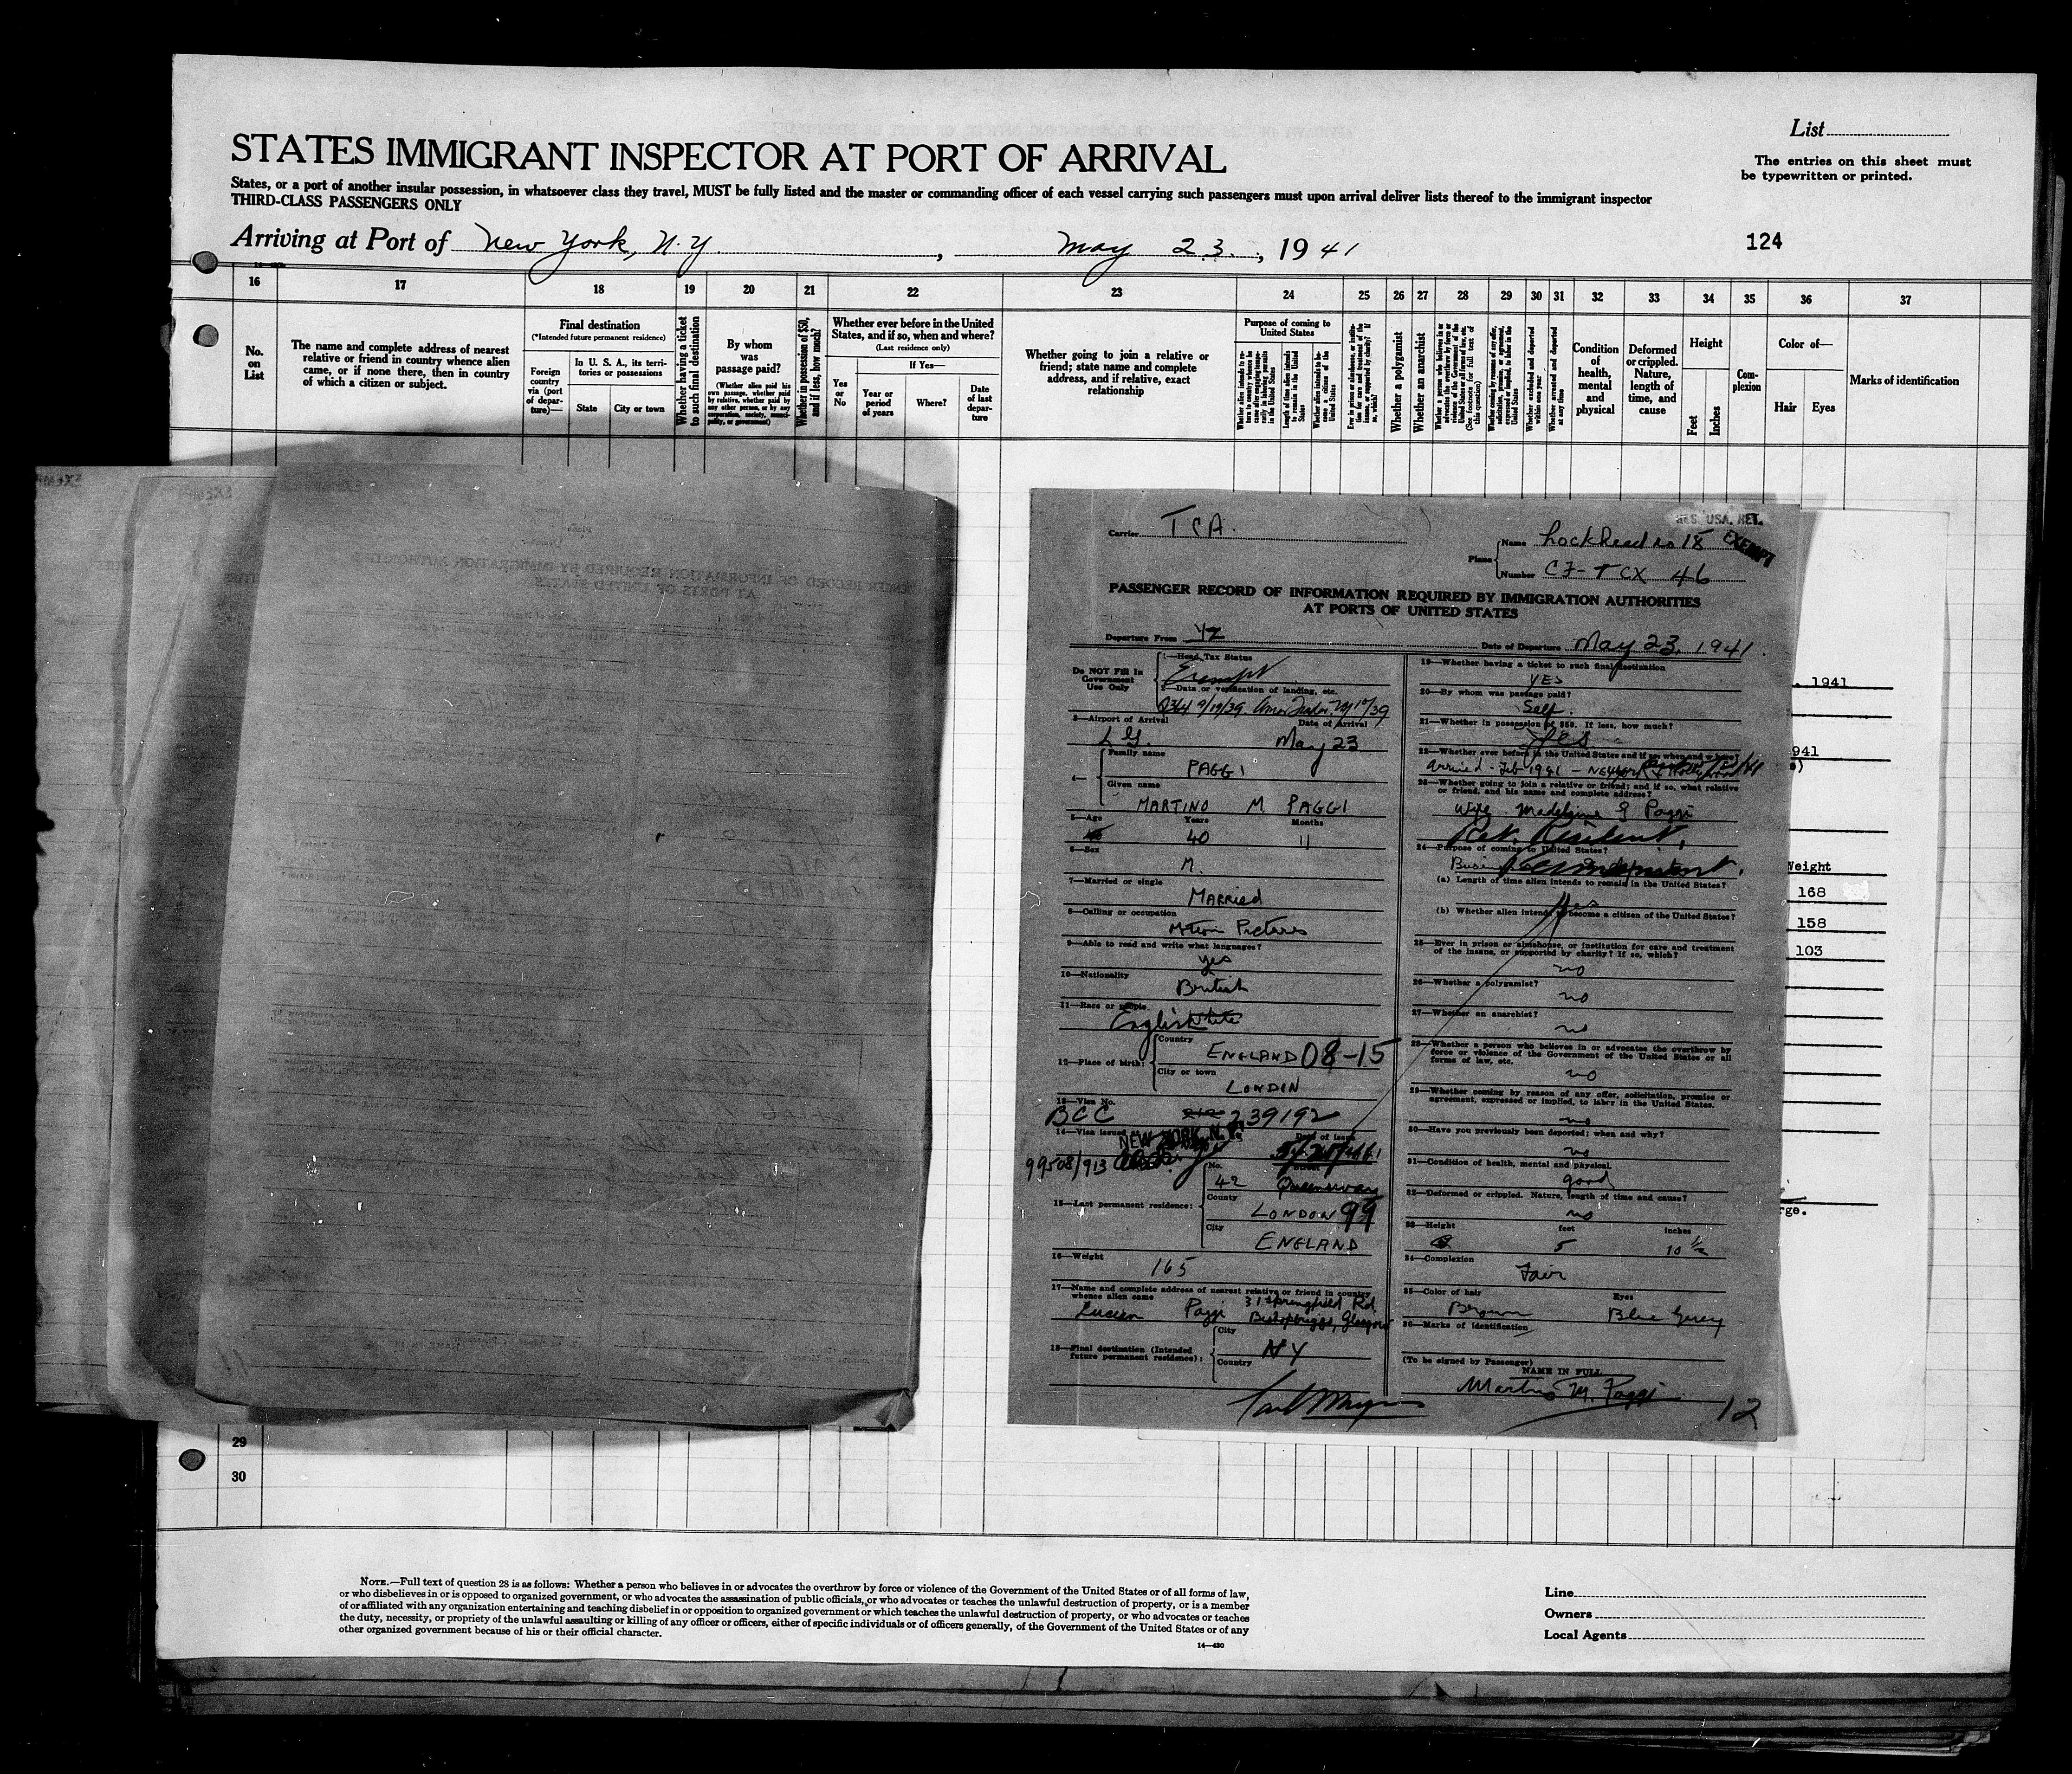 List
STATES IMMIGRANT INSPECTOR AT PORT OF ARRIVAL
The entries on this sheet must
be typewritten or printed.
States, or a port of another insular possession, in whatsoever class they travel, MUST be fully listed and the master or commanding officer of each vessel carrying such passengers must upon arrival deliver lists thereof to the immigrant inspector
THIRD-CLASS PASSENGERS ONLY
Arriving at Port of New York, N.Y., May 23, 1941
124
16 17 18 19 20 21 22 23 24 25 26 27 28 29 30 31 32 33 34 35 36 37
No.
on
List
The name and complete address of nearest
relative or friend in country whence alien
came, or if none there, then in country
of which a citizen or subject.
Final destination
(*Intended future permanent residence)
Foreign
country
via (port
of depar-
ture)—
In U. S. A., its terri-
tories or possessions
State
City or town
Whether having a ticket
to such final destination
By whom
was
passage paid?
(Whether alien paid his
own passage, whether paid by
relative, whether paid by
any other person, or by any
corporation, society, munici-
pality, or government)
Whether in possession of $50,
and if less, how much?
Whether ever before in the United
States, and if so, when and where?
(Last residence only)
If Yes—
Yes
or
No
Year or
period
of years
Where?
Date
of last
depar-
ture
Whether going to join a relative or
friend; state name and complete
address, and if relative, exact
relationship
Purpose of coming to
United States
Length of time alien intends
to remain in the United
States
Whether alien intends to be-
come a citizen of the
United States
Whether a polygamist
Whether an anarchist
Whether arrested and deported
at any time
Condition
of
health,
mental
and
physical
Deformed
or crippled.
Nature,
length of
time, and
cause
Height
Feet
Inches
Com-
plexion
Color of—
Hair
Eyes
Marks of identification
Carrier TCA.
RES. USA. RET.
EXEMPT
Plane
Name Lockheed no 18
Number CF-TCX 46
PASSENGER RECORD OF INFORMATION REQUIRED BY IMMIGRATION AUTHORITIES
AT PORTS OF UNITED STATES
Departure From YZ
Date of Departure May 23, 1941.
Do NOT Fill In
Government
Use Only
1—Head Tax Status
Exempt
2—Data or verification of landing, etc.
3—Airport of Arrival
Date of Arrival
L G. May 23
4—
Family name
PAGGI
Given name
MARTINO M PAGGI
5—Age
Years
Months
40 11
6—Sex
M.
7—Married or single
MARRIED
8—Calling or occupation
Motion Pictures
9—Able to read and write what languages?
yes
10—Nationality
British
11—Race or people
English
12—Place of birth:
Country
ENGLAND 08-15
City or town
LONDON
13—Visa No.
BCC 239192
14—Visa issued at
NEW YORK N.Y.
Date of issue
99508/913
15—Last permanent residence:
No.
Street
42 Queensway
County
LONDON 99
City
ENGLAND
16—Weight
165
17—Name and complete address of nearest relative or friend in country
whence alien came
Lucien Paggi 31 Springfield Rd.
Bishopbriggs, Glasgow
18—Final destination (Intended
future permanent residence):
City
NY
Country
19—Whether having a ticket to such final destination
YES
20—By whom was passage paid?
Self.
21—Whether in possession of $50. If less, how much?
yes
22—Whether ever before in the United States and if so when and where?
Arrived - Feb 1941 - New York
23—Whether going to join a relative or friend; and if so, what relative
or friend, and his name and complete address?
wife - Madeleine G Paggi
Ret. Resident,
24—Purpose of coming to United States?
(a) Length of time alien intends to remain in the United States?
Yes
(b) Whether alien intends to become a citizen of the United States?
25—Ever in prison or almshouse, or institution for care and treatment
of the insane, or supported by charity? If so, which?
no
26—Whether a polygamist?
no
27—Whether an anarchist?
no
28—Whether a person who believes in or advocates the overthrow by
force or violence of the Government of the United States or all
forms of law, etc.
no
29—Whether coming by reason of any offer, solicitation, promise or
agreement, expressed or implied, to labor in the United States.
no
30—Have you previously been deported; when and why?
no
31—Condition of health, mental and physical.
good
32—Deformed or crippled. Nature, length of time and cause?
no
33—Height
feet
inches
5 10 1/2
34—Complexion
Fair
35—Color of hair
Eyes
Brown Blue Grey
36—Marks of identification
(To be signed by Passenger)
NAME IN FULL
Martino M. Paggi
12
, 1941
941
Weight
168
158
103
rge.
29
30
NOTE.—Full text of question 28 is as follows: Whether a person who believes in or advocates the overthrow by force or violence of the Government of the United States or of all forms of law,
or who disbelieves in or is opposed to organized government, or who advocates the assassination of public officials, or who advocates or teaches the unlawful destruction of property, or is a member
of or affiliated with any organization entertaining and teaching disbelief in or opposition to organized government or which teaches the unlawful destruction of property, or who advocates or teaches
the duty, necessity, or propriety of the unlawful assaulting or killing of any officer or officers, either of specific individuals or of officers generally, of the Government of the United States or of any
other organized government because of his or their official character.
14—430
Line
Owners
Local Agents